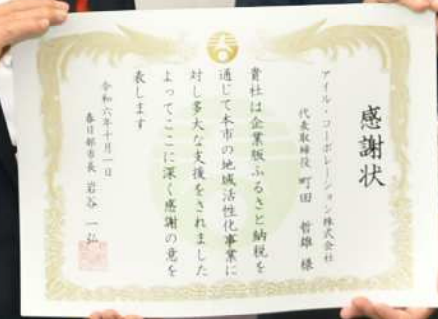 感謝状
アイル・コーポレーション株式会社
代表取締役 町田 哲雄 様
貴社は企業版ふるさと納税を
通じて本市の地域活性化事業に
対し多大な支援をされました
よってここに深く感謝の意を
表します
令和六年十月一日
春日部市長 岩谷 一弘